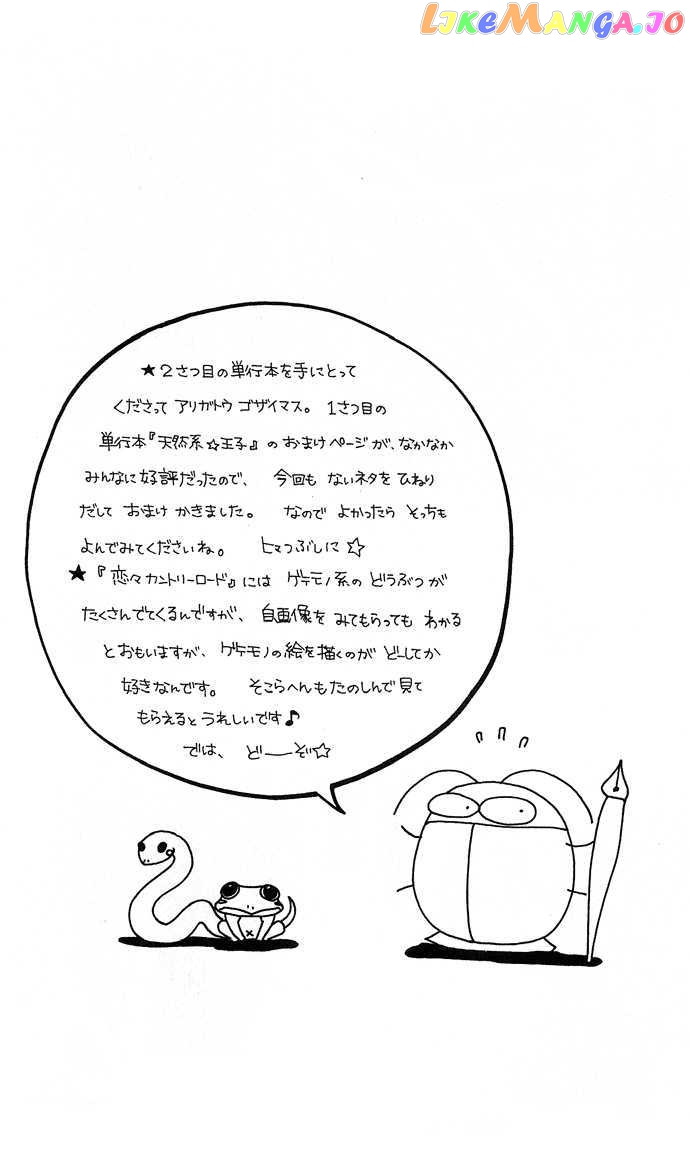 LIKEMANGA.IO
★2さつ目の単行本を手にとって
くださって アリガトウ ゴザイマス。 1さつ目の
単行本『天然系☆王子』の おまけページが、なかなか
みんなに好評だったので、 今回も ないネタを ひねり
だして おまけ かきました。 なので よかったら そっちも
よんでみてくださいね。 ヒマつぶしに☆
★『恋々カントリーロード』には ゲテモノ系の どうぶつが
たくさんでてくるんですが、自画像を みてもらっても わかる
とおもいますが、ゲテモノの絵を描くのが どーしてか
好きなんです。 そこらへんもたのしんで見て
もらえるとうれしいです♪
では、 ど――ぞ☆